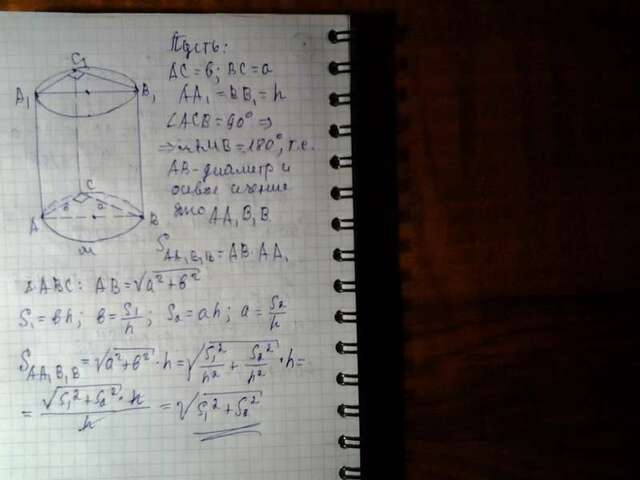 Пусть:
AC = в; BC = a
AA₁ = BB₁ = h
∠ACB = 90° ⇒
⇒ ∪AMB = 180°, т.е.
AB - диаметр и
осевое сечение
это AA₁B₁B.
S_AA₁B₁B = AB · AA₁
C₁
A₁ B₁
C
в a
A B
м
△ABC: AB = √(a² + в²)
S₁ = вh; в = S₁/h; S₂ = ah; a = S₂/h
S_AA₁B₁B = √(a² + в²) · h = √(S₁²/h² + S₂²/h²) · h =
= √(S₁² + S₂²) · h / h = √(S₁² + S₂²)